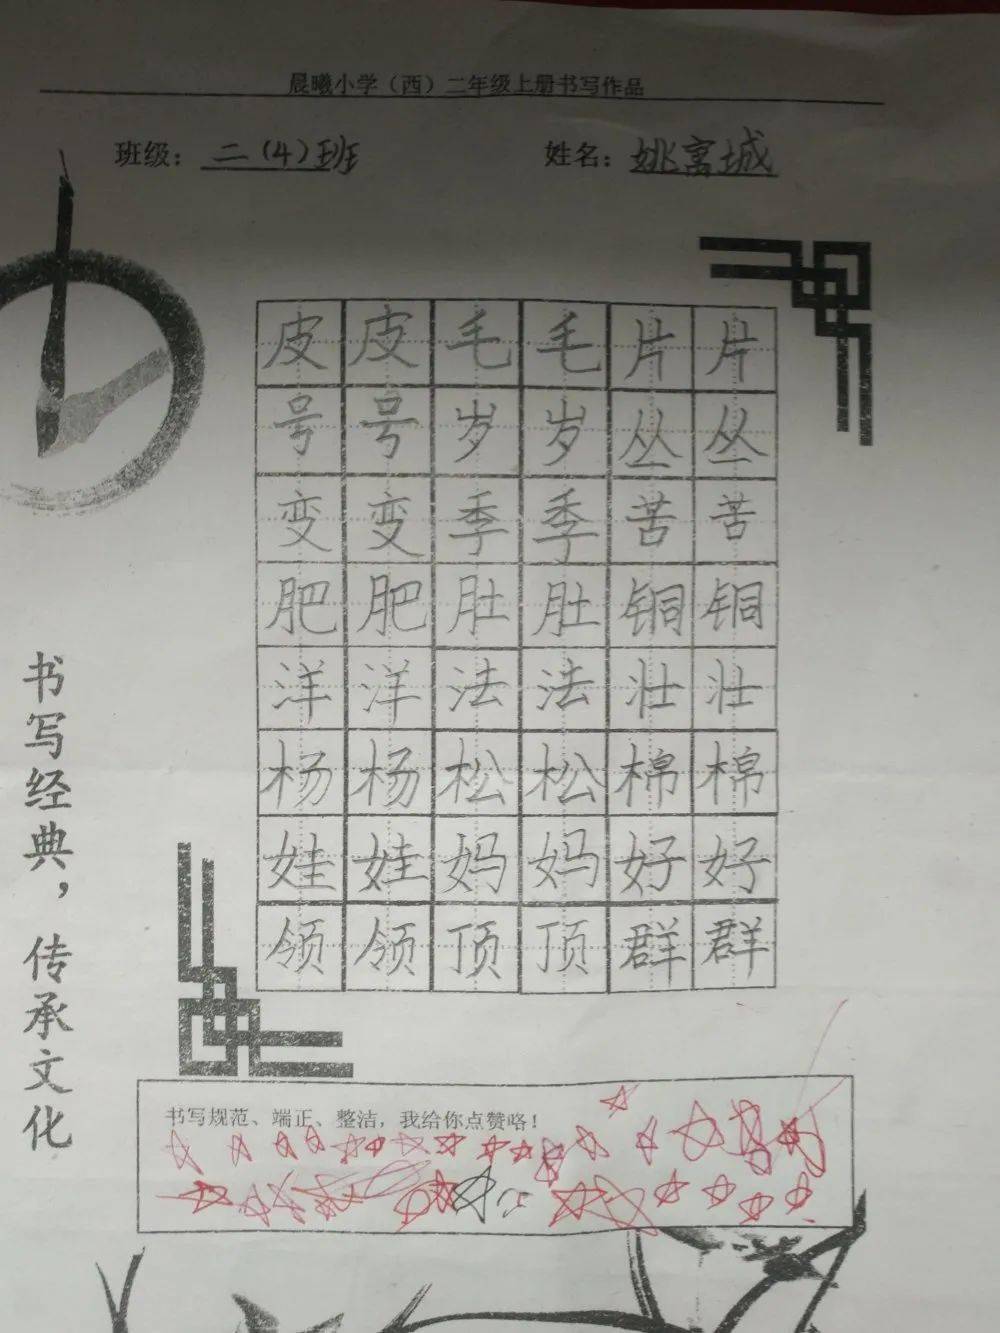 晨曦小学（西）二年级上册书写作品
班级：二（4）班 姓名：姚寓城
皮皮毛毛片片
号号岁岁丛丛
变变季季苦苦
肥肥肚肚铜铜
洋洋法法壮壮
杨杨松松棉棉
娃娃妈妈好好
领领顶顶群群
书写经典，传承文化
书写规范、端正、整洁，我给你点赞咯！